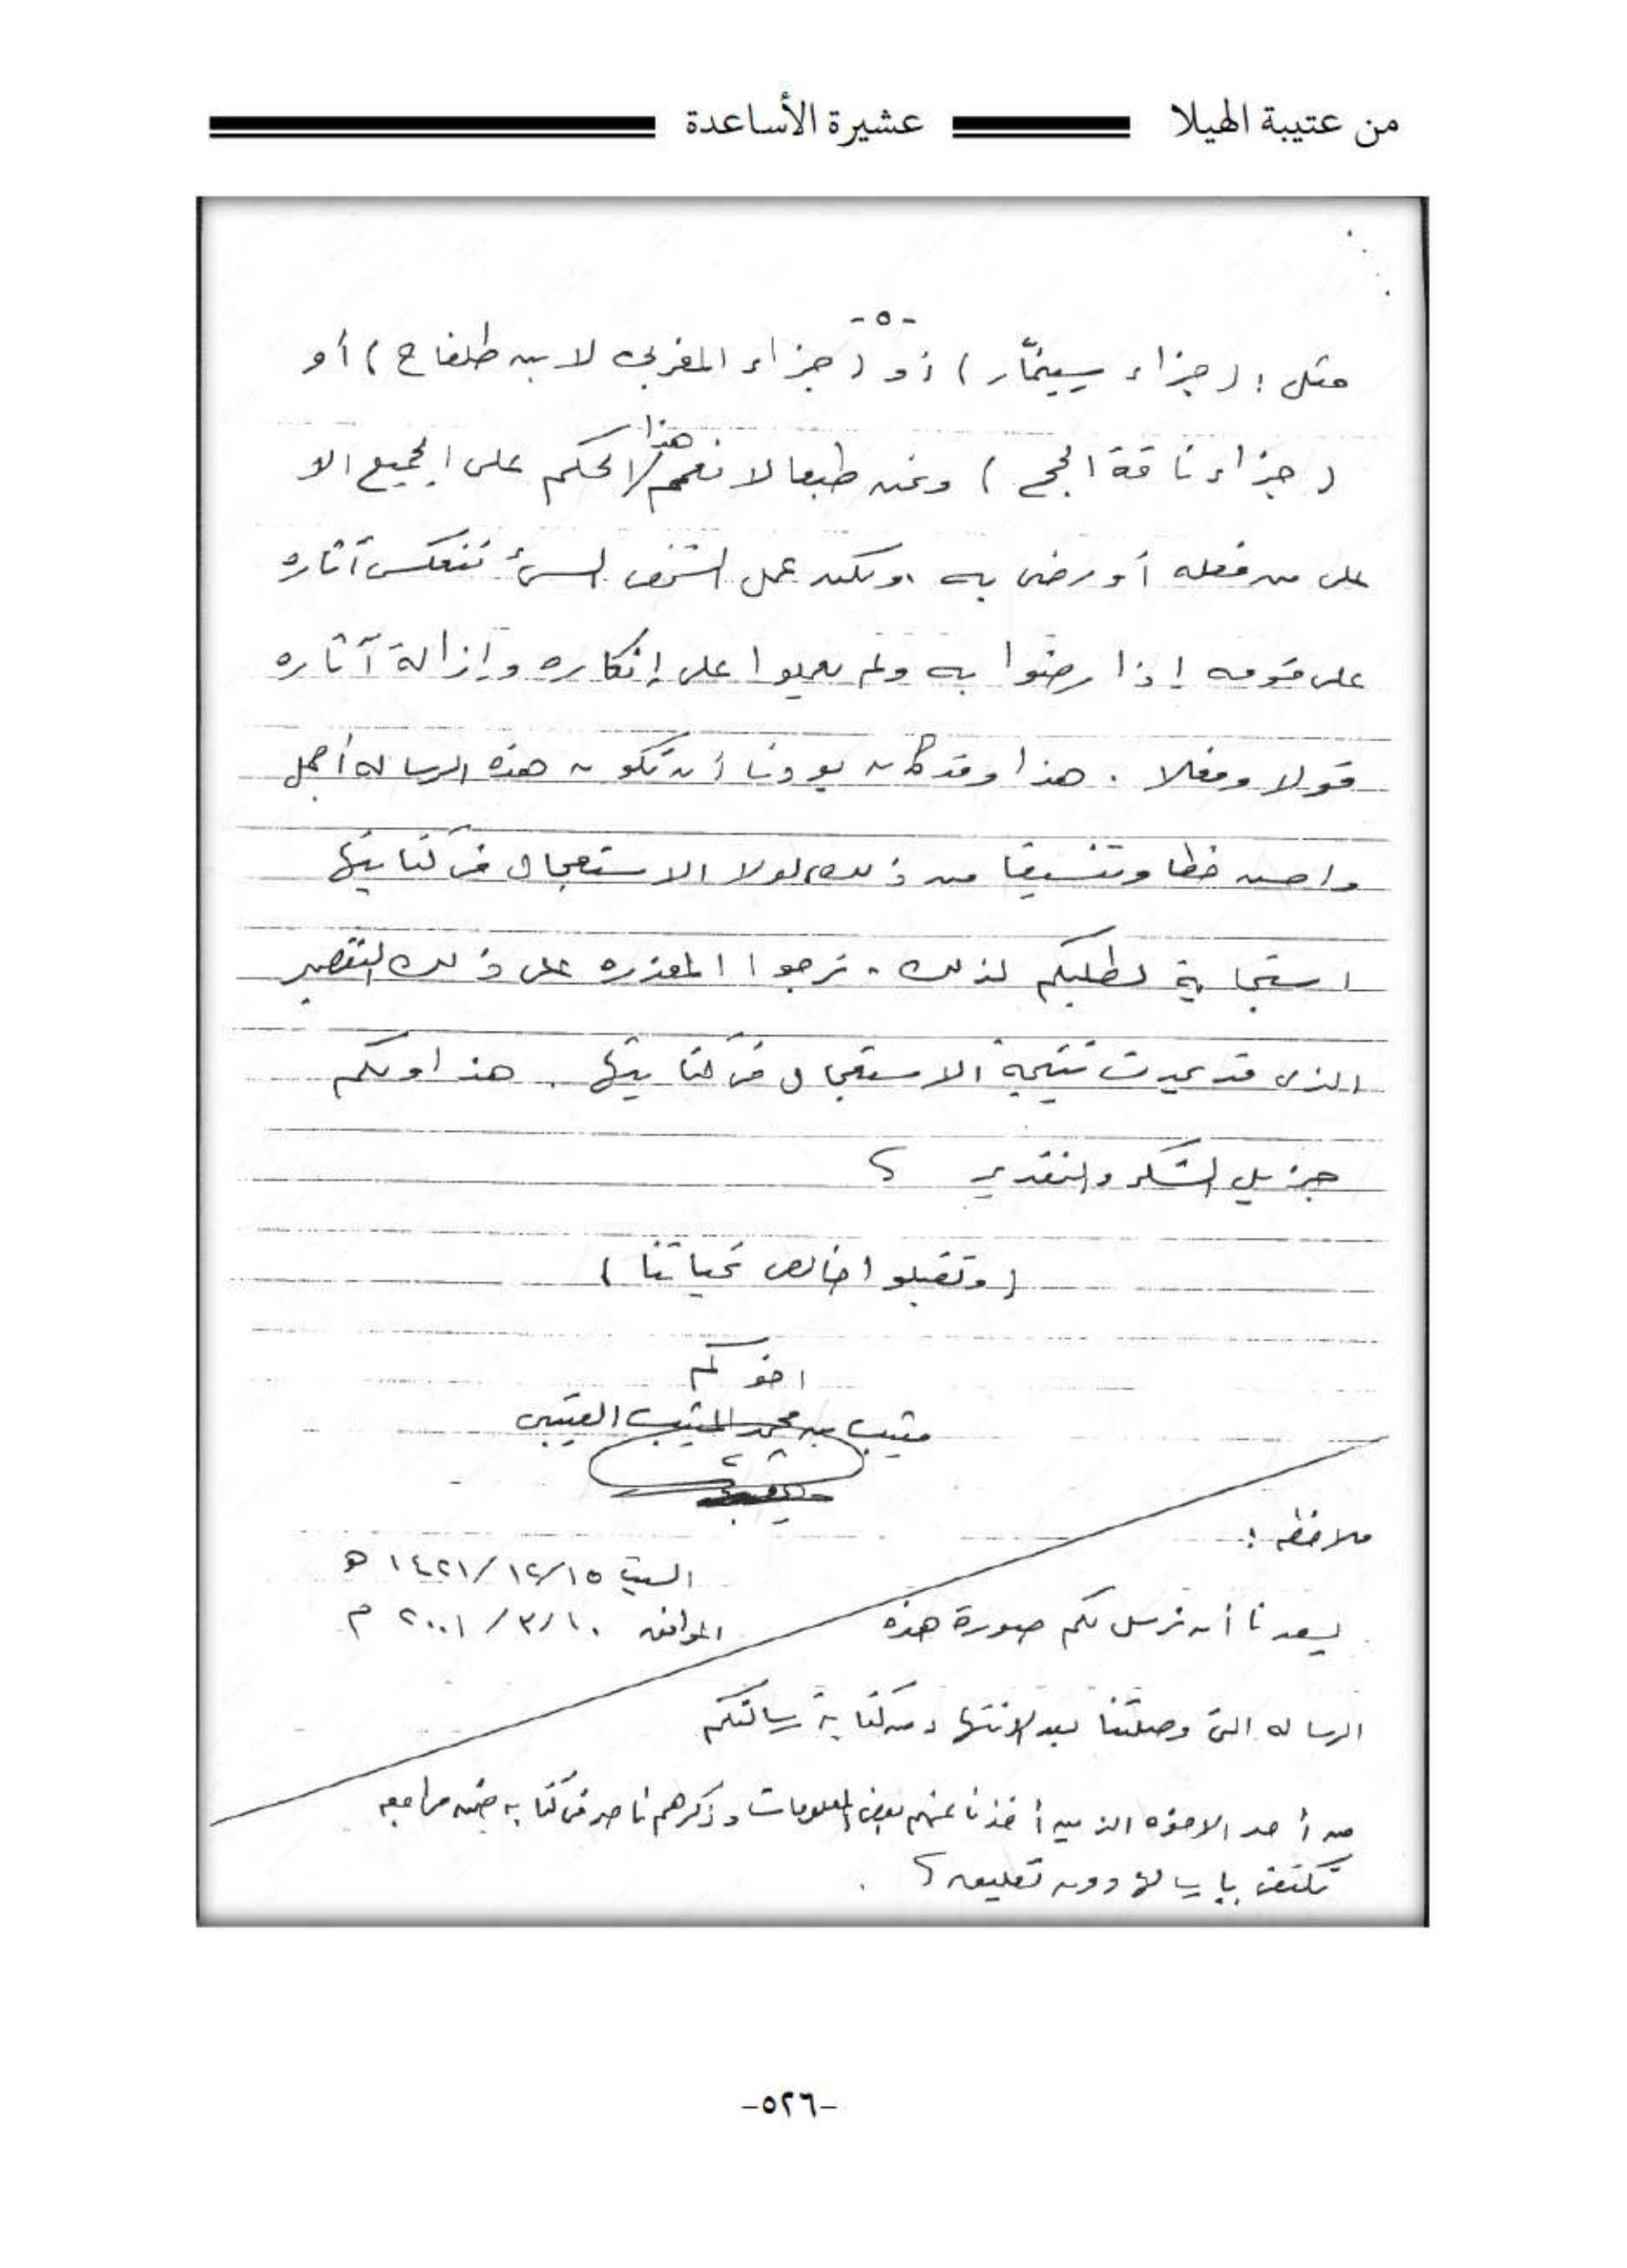 من عتيبة الهيلا عشيرة الأساعدة
-٥-
مثل : ( جزاء سينمّار ) أو ( جزاء المغربي لا بن طلفاح ) أو
( جزاء ناقة الحج ) ونحن طبعا لا نعمم هذا الحكم على الجميع الا
على من فعله أو رضى به ، ولكن عمل الشخص السيء تنعكس آثاره
على قومه إذا رضوا به ولم يعملوا على إنكاره وإزالة آثاره
قولا وفعلا . هذا وقد كان بودنا أن تكون هذه الرساله أجمل
واحسن خطا وتنسيقا من ذلك لولا الاستعجال في كتابتها
استجابة لطلبكم لذلك . نرجوا المعذره على ذلك التقصير
الذى قد يحدث نتيجة الاستعجال في كتابتها . هذا ولكم
جزيل الشكر والتقدير
( وتقبلو اخالص تحياتنا )
اخوكم
متيب بن محمد المتيب العتيبي
ملاحظه :
السبت ١٤٢١/١٢/١٥ هـ
الموافق ٢٠٠١/٣/١٠ م
يسعدنا أن نرسل لكم صورة هذه
الرساله التي وصلتنا بعد الانتهاء من كتابة رسالتكم
من أحد الاخوه الذين أخذنا عنهم بعض المعلومات وذكرهم ناصر في كتابه ضمن مراجعه
نكتفي بإرسالها دون تعليق
-٥٢٦-